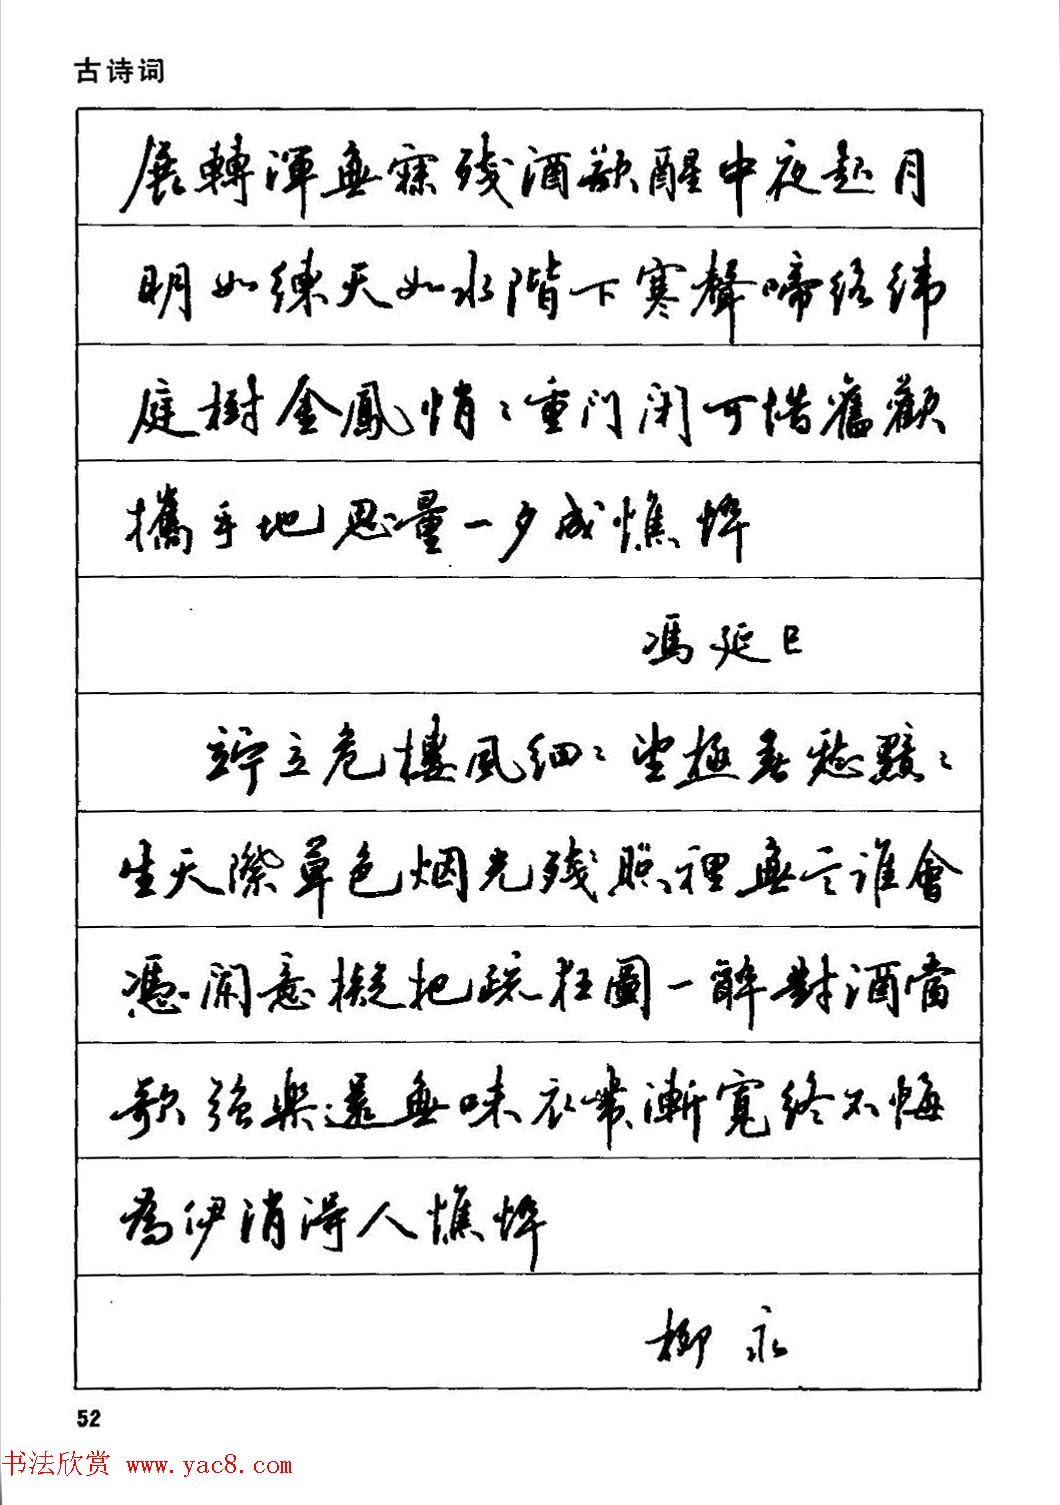 古诗词
展轉渾無寐殘酒欲醒中夜起月
明如練天如水階下寒聲啼絡緯
庭樹金鳳悄〻重门闭可惜舊歡
攜手地思量一夕成憔悴
馮延巳
竚立危樓風细〻望極春愁黯〻
生天際草色烟光殘照裡無言谁會
憑闌意擬把疏狂圖一醉對酒當
歌強樂還無味衣帶漸寬終不悔
為伊消得人憔悴
柳永
52
书法欣赏 www.yac8.com